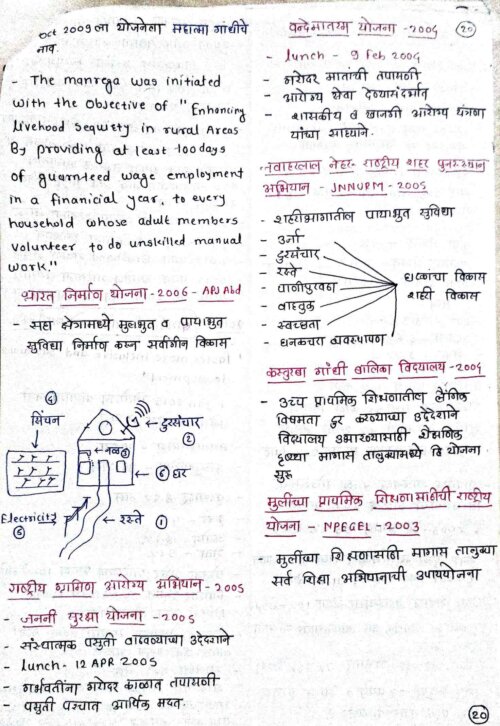 Oct 2009 ला योजनेला महात्मा गांधींचे
नाव.
- The manrega was initiated
with the objective of " Enhancing
livehood sequisty in rural Areas
By providing at least 100 days
of guarnteed wage employment
in a finanicial year, to every
household whose adult members
volunteer to do unskilled manual
work."
भारत निर्माण योजना - 2006 - APJ Abd
- सहा क्षेत्रामध्ये मुलभुत व पायाभुत
सुविधा निर्माण करून सर्वांगीन विकास
④
सिंचन
दुरसंचार
②
नळ
⑥ घर
Electricity
⑤
रस्ते ①
राष्ट्रीय ग्रामिण आरोग्य अभियान - 2005
- जननी सुरक्षा योजना - 2005
- संस्थात्मक प्रसुती वाढवल्याच्या उद्देशाने
- lunch - 12 APR 2005
- गर्भवतींना गरोदर काळात तपासणी
- प्रसुती पश्चात आर्थिक मदत.
वन्देमातरम योजना - 2004
20
- lunch - 9 Feb 2004
- गरोदर मातांची तपासणी
- आरोग्य सेवा देण्यासंदर्भात
- शासकीय व खाजगी आरोग्य यंत्रणा
यांच्या साह्याने.
जवाहरलाल नेहरू राष्ट्रीय शहर पुनरुत्थान
अभियान - JNNURM - 2005
- शहरीभागातील पायाभुत सुविधा
- उर्जा
- दुरसंचार
- रस्ते
- पाणीपुरवठा
- वाहतुक
- स्वच्छता
- घनकचरा व्यवस्थापण
शहरांचा विकास
शहरी विकास
कस्तुरबा गांधी बालिका विद्यालय - 2004
- उच्च प्राथमिक शिक्षणातील लैंगिक
विषमता दुर करण्याच्या उद्देशाने
विद्यालय उभारण्यासाठी शैक्षणिक
दृष्ट्या मागास तालुक्यामध्ये हि योजना
सुरू
मुलींच्या प्राथमिक शिक्षणासाठीची राष्ट्रीय
योजना - NPEGEL - 2003
मुलींच्या शिक्षणासाठी मागास तालुक्यात
सर्व शिक्षा अभियानाची उपाययोजना
20